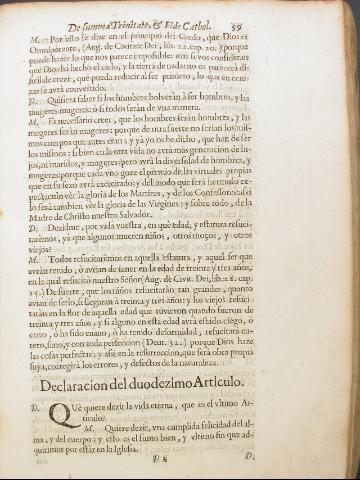 De summa Trinitate, & Fide Cathol. 59
M. Por esso se dize en el principio del Credo, que Dios es
Omnipotente, (Aug. de Civitate Dei, lib. 22. cap. 20.) porque
puede hazer lo que nos parece impossible: mas si vos considerais
que Dios há hecho el cielo, y la tierra de nada: no os parecerá di-
ficil de creer, que pueda reducir al ser primero, lo que en ceni-
zas se avrá convertido.
D. Quisiera saber si los hombres bolverán à ser hombres, y las
mugeres mugeres: ò si todos serán de vna manera.
M. Es necessario creer, que los hombres serán hombres, y las
mugeres serán mugeres: porque de otra suerte no serian los mis-
mos cuerpos que antes eran: y yá yo os he dicho, que han de ser
los mismos: si bien en la otra vida no avrá mas generacion de hi-
jos, ni maridos, y mugeres: pero avrá la diversidad de hombres, y
mugeres: porque cada vno goze el premio de las virtudes propias
que en su sexo avrá exercitado: y del modo que será hermoso ex-
pectaculo ver la gloria de los Martires, y de los Confessores: assi
lo será tambien ver la gloria de las Virgines: y sobre todo, de la
Madre de Christo nuestro Salvador.
D. Dezidme, por vida vuestra, en què edad, y estatura resuci-
tarèmos, yà que algunos mueren niños, otros moços, y otros
viejos?
M. Todos resucitaremos en aquella estatura, y aquel ser que
avrán tenido, ò avian de tener en la edad de treinta y tres años,
en la qual resucitò nuestro Señor (Aug. de Civit. Dei, lib. 22. cap.
15.) De suerte, que los niños resucitarán tan grandes, quanto
avian de serlo, si llegaran à treinta y tres años: y los viejos resuci-
tarán en la flor de aquella edad que tuvieron quando fueron de
treinta y tres años: y si alguno en esta edad avrá estado ciego, ò
coxo, ò ha sido enano, ò ha tenido desformidad, resucitará en-
tero, sano, y con toda perfeccion (Deut. 32.) porque Dios haze
las cosas perfectas: y assi en la resurreccion, que será obra propia
suya, corregirá los errores, y defectos de la naturaleza.
Declaracion del duodezimo Articulo.
D. QUè quiere dezir la vida eterna, que es el vltimo Ar-
ticulo?
M. Quiere dezir, vna cumplida felicidad del al-
ma, y del cuerpo: y esto es el sumo bien, y vltimo fin que ad-
quirimos por estár en la Iglesia.
D.